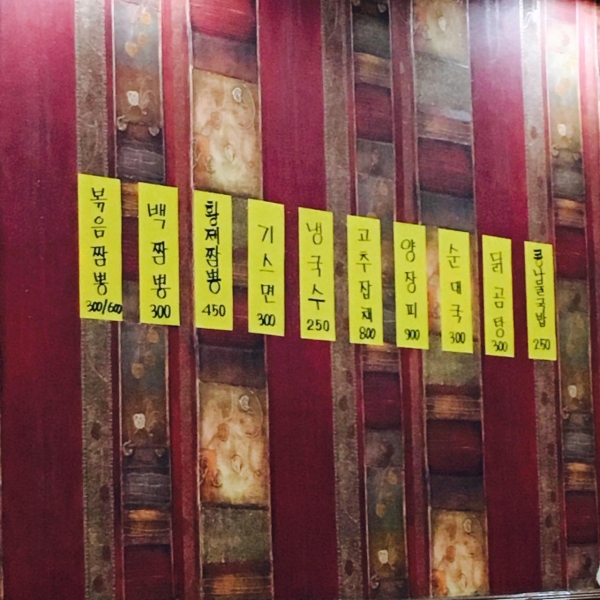 볶음짬뽕 300/600
백짬뽕 300
황제짬뽕 450
기스면 300
냉국수 250
고추잡채 800
양장피 900
순대국 300
닭곰탕 300
콩나물국밥 250